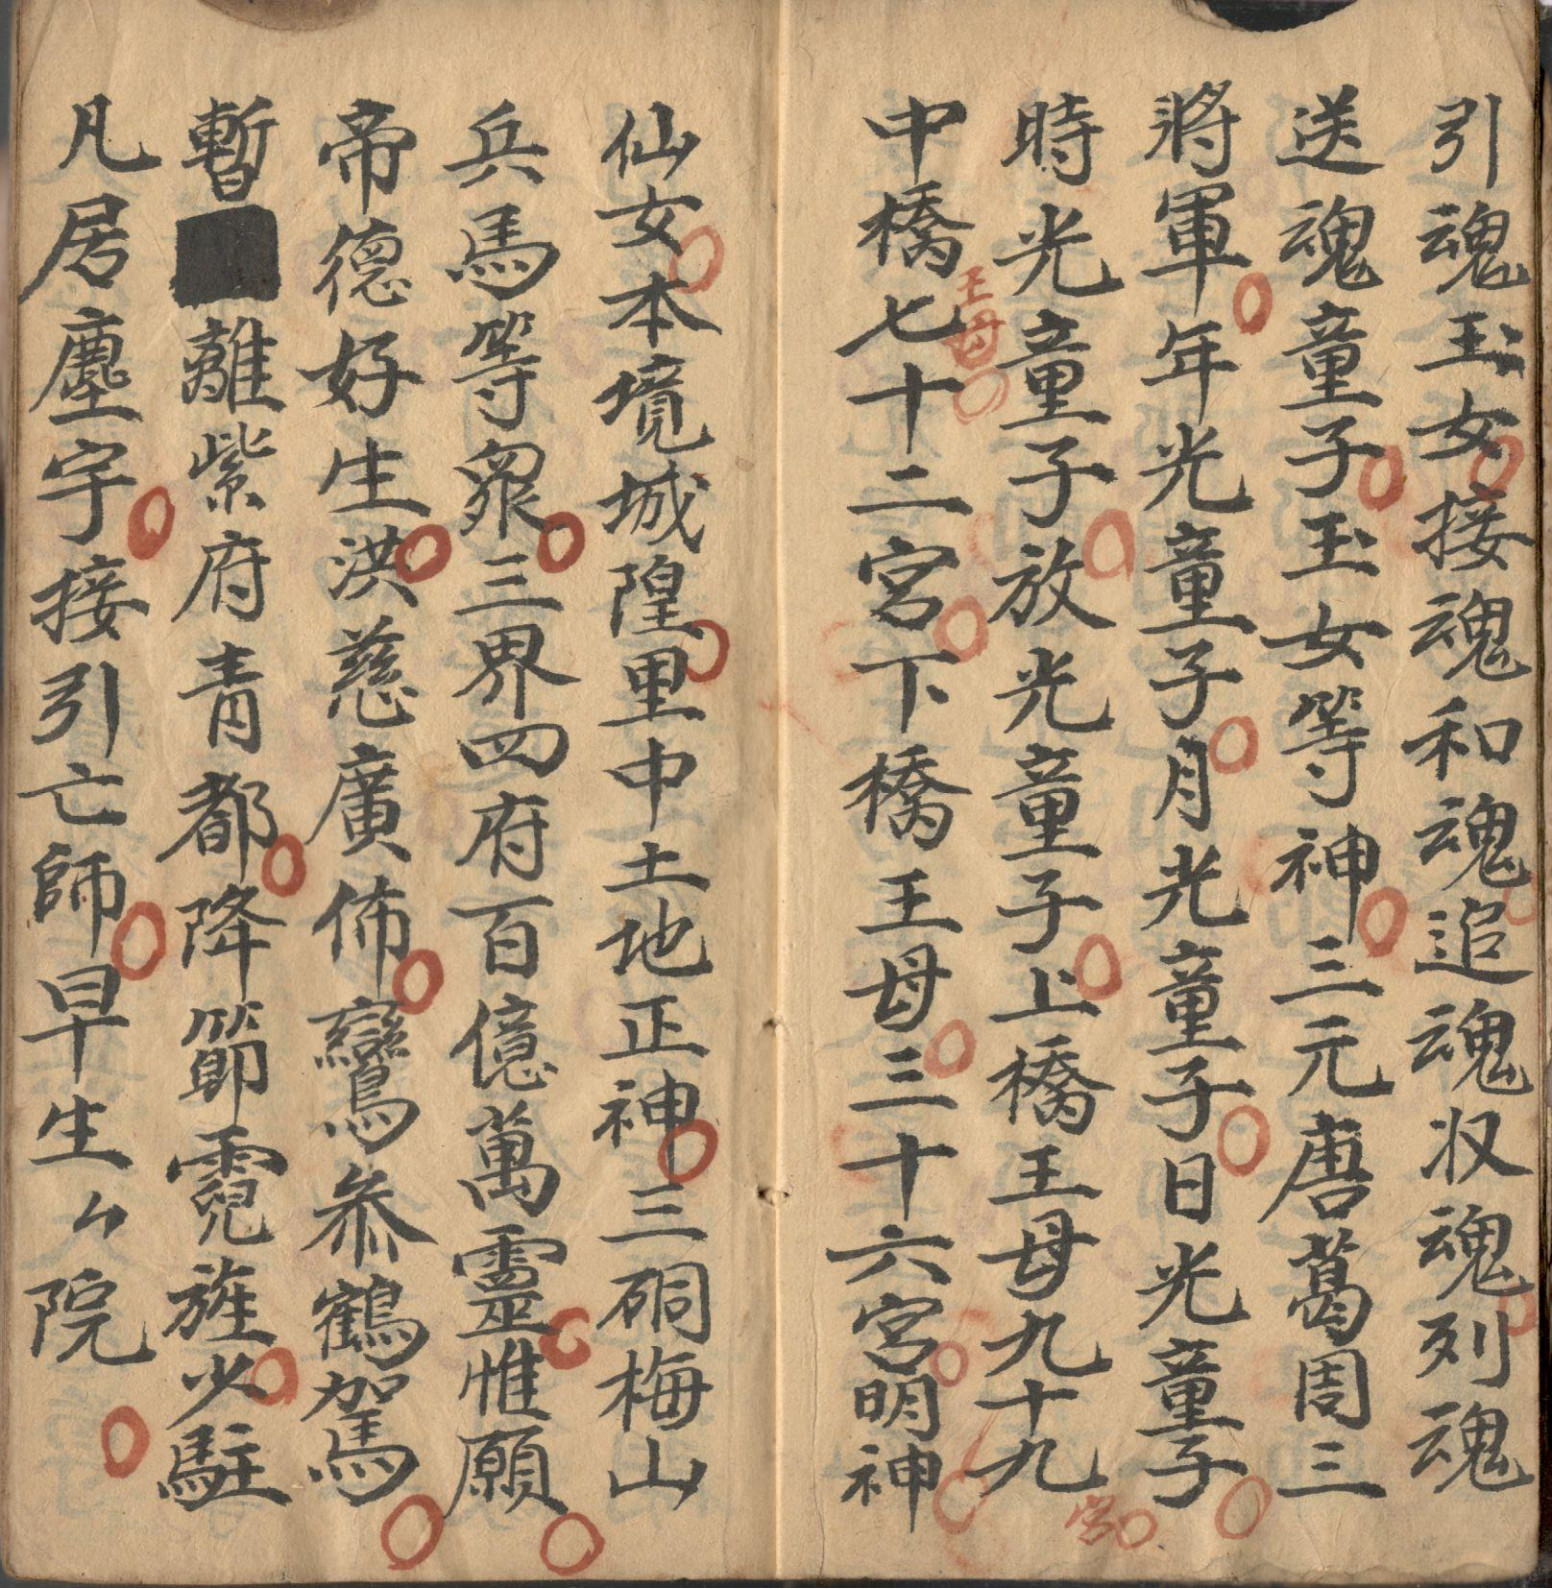 引魂玉女接魂和魂追魂収魂列魂
送魂童子玉女等神三元唐葛周三
將軍年光童子月光童子日光童子
時光童子放光童子上橋王母九十九
宮
中橋王母七十二宮下橋王母三十六宮明神
仙女本境城隍里中土地正神三硐梅山
兵馬等眾三界四府百億萬靈惟願
帝德好生洪慈廣佈鸞叅鶴駕
暫離紫府青都降節霓旌少駐
凡居塵宇接引亡師早生々院